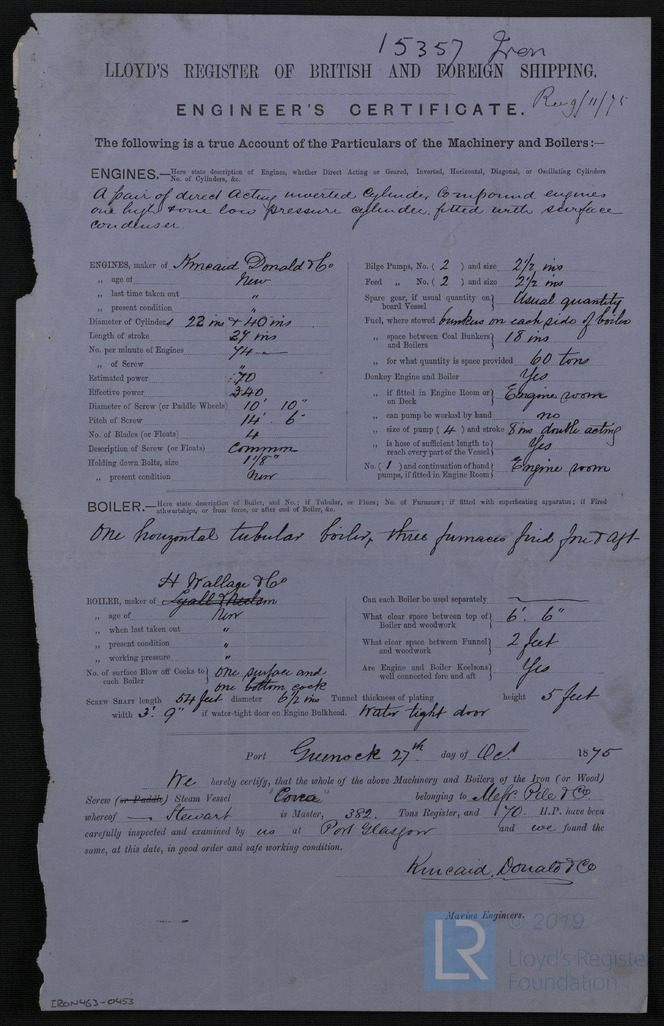 15357 Iron
LLOYD'S REGISTER OF BRITISH AND FOREIGN SHIPPING.
ENGINEER'S CERTIFICATE. Rec 9/11/75
The following is a true Account of the Particulars of the Machinery and Boilers:—
ENGINES.—Here state description of Engines, whether Direct Acting or Geared, Inverted, Horizontal, Diagonal, or Oscillating Cylinders
No. of Cylinders, &c.
A pair of direct acting inverted Cylinder Compound engines
one high & one low pressure cylinder, fitted with surface
condenser
ENGINES, maker of Kincaid Donald & Co
„ age of New
„ last time taken out „
„ present condition „
Diameter of Cylinders 22 ins & 40 ins
Length of stroke 27 ins
No. per minute of Engines 74
„ of Screw „
Estimated power 70
Effective power 340
Diameter of Screw (or Paddle Wheels) 10' 10"
Pitch of Screw 14' 6"
No. of Blades (or Floats) 4
Description of Screw (or Floats) Common
Holding down Bolts, size 1 1/8"
„ present condition New
Bilge Pumps, No. ( 2 ) and size 2 1/2 ins
Feed „ No. ( 2 ) and size 2 1/2 ins
Spare gear, if usual quantity on board Vessel Usual quantity
Fuel, where stowed bunkers on each side of boiler
„ space between Coal Bunkers and Boilers 18 ins
„ for what quantity is space provided 60 tons
Donkey Engine and Boiler Yes
„ if fitted in Engine Room or on Deck Engine room
„ can pump be worked by hand no
„ size of pump ( 4 ) and stroke 8 ins double acting
„ is hose of sufficient length to reach every part of the Vessel Yes
No. ( 1 ) and continuation of hand pumps, if fitted in Engine Room Engine room
BOILER.—Here state description of Boiler, and No.; if Tubular, or Flues; No. of Furnaces; if fitted with superheating apparatus; if Fired
athwartships, or from fore, or after end of Boiler, &c.
One horizontal tubular boiler, three furnaces fired fore & aft
H Wallace & Co
BOILER, maker of
„ age of New
„ when last taken out „
„ present condition „
„ working pressure „
No. of surface Blow off Cocks to each Boiler One surface and
one bottom cock
Can each Boiler be used separately
What clear space between top of Boiler and woodwork 6'. 6"
What clear space between Funnel and woodwork 2 feet
Are Engine and Boiler Keelsons well connected fore and aft Yes
SCREW SHAFT length 54 feet diameter 6 1/2 ins Tunnel thickness of plating height 5 feet
width 3'. 9" if water-tight door on Engine Bulkhead. Water tight door
Port Greenock 27th day of Oct 1875
We hereby certify, that the whole of the above Machinery and Boilers of the Iron (or Wood)
Screw (or Paddle) Steam Vessel "Corea" belonging to Messrs Pile & Co
whereof — Stewart is Master, 382. Tons Register, and 70. H.P. have been
carefully inspected and examined by us at Port Glasgow and we found the
same, at this date, in good order and safe working condition.
Kincaid, Donald & Co
Marine Engineers.
© 2019
LR Lloyd's Register
Foundation
IRON463-0453